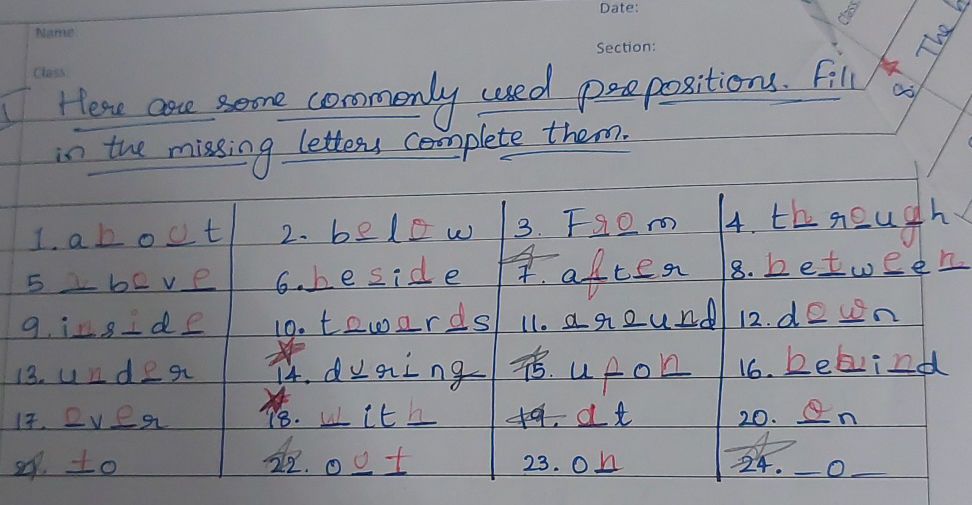 Date:
Name
Section:
Class
I Here are some commonly used prepositions. Fill
in the missing letters complete them.
1. about 2. below 3. From 4. through
5 above 6. beside 7. after 8. between
9. inside 10. towards 11. around 12. down
13. under 14. during 15. upon 16. behind
17. over 18. with 19. at 20. on
21. to 22. out 23. on 24. _o_
The
8
Class